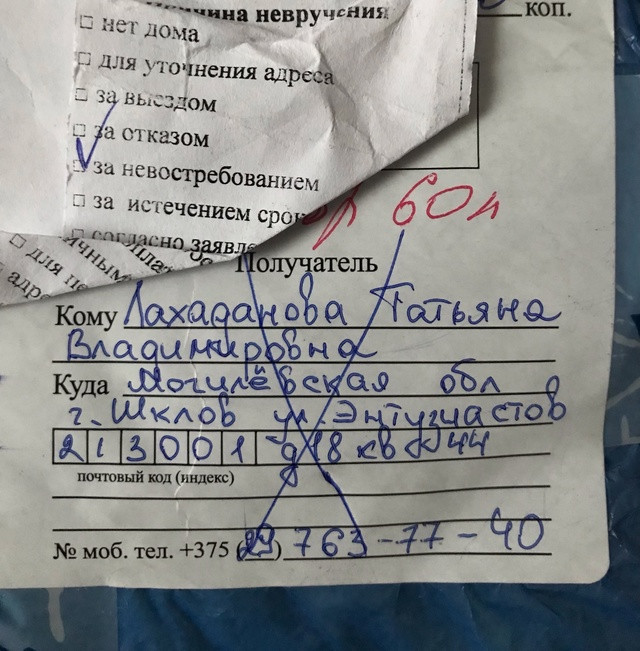 невручения
коп.
□ нет дома
□ для уточнения адреса
□ за выездом
□ за отказом
□ за невостребованием
□ за истечением срок
□ согласно заявле
□ для пе
адре
60л
Получатель
Кому Лахаданова Татьяна
Владимировна
Куда Могилёвская обл
г. Шклов ул. Энтузиастов
213001 д18 кв 44
почтовый код (индекс)
№ моб. тел. +375 (29) 763-77-40